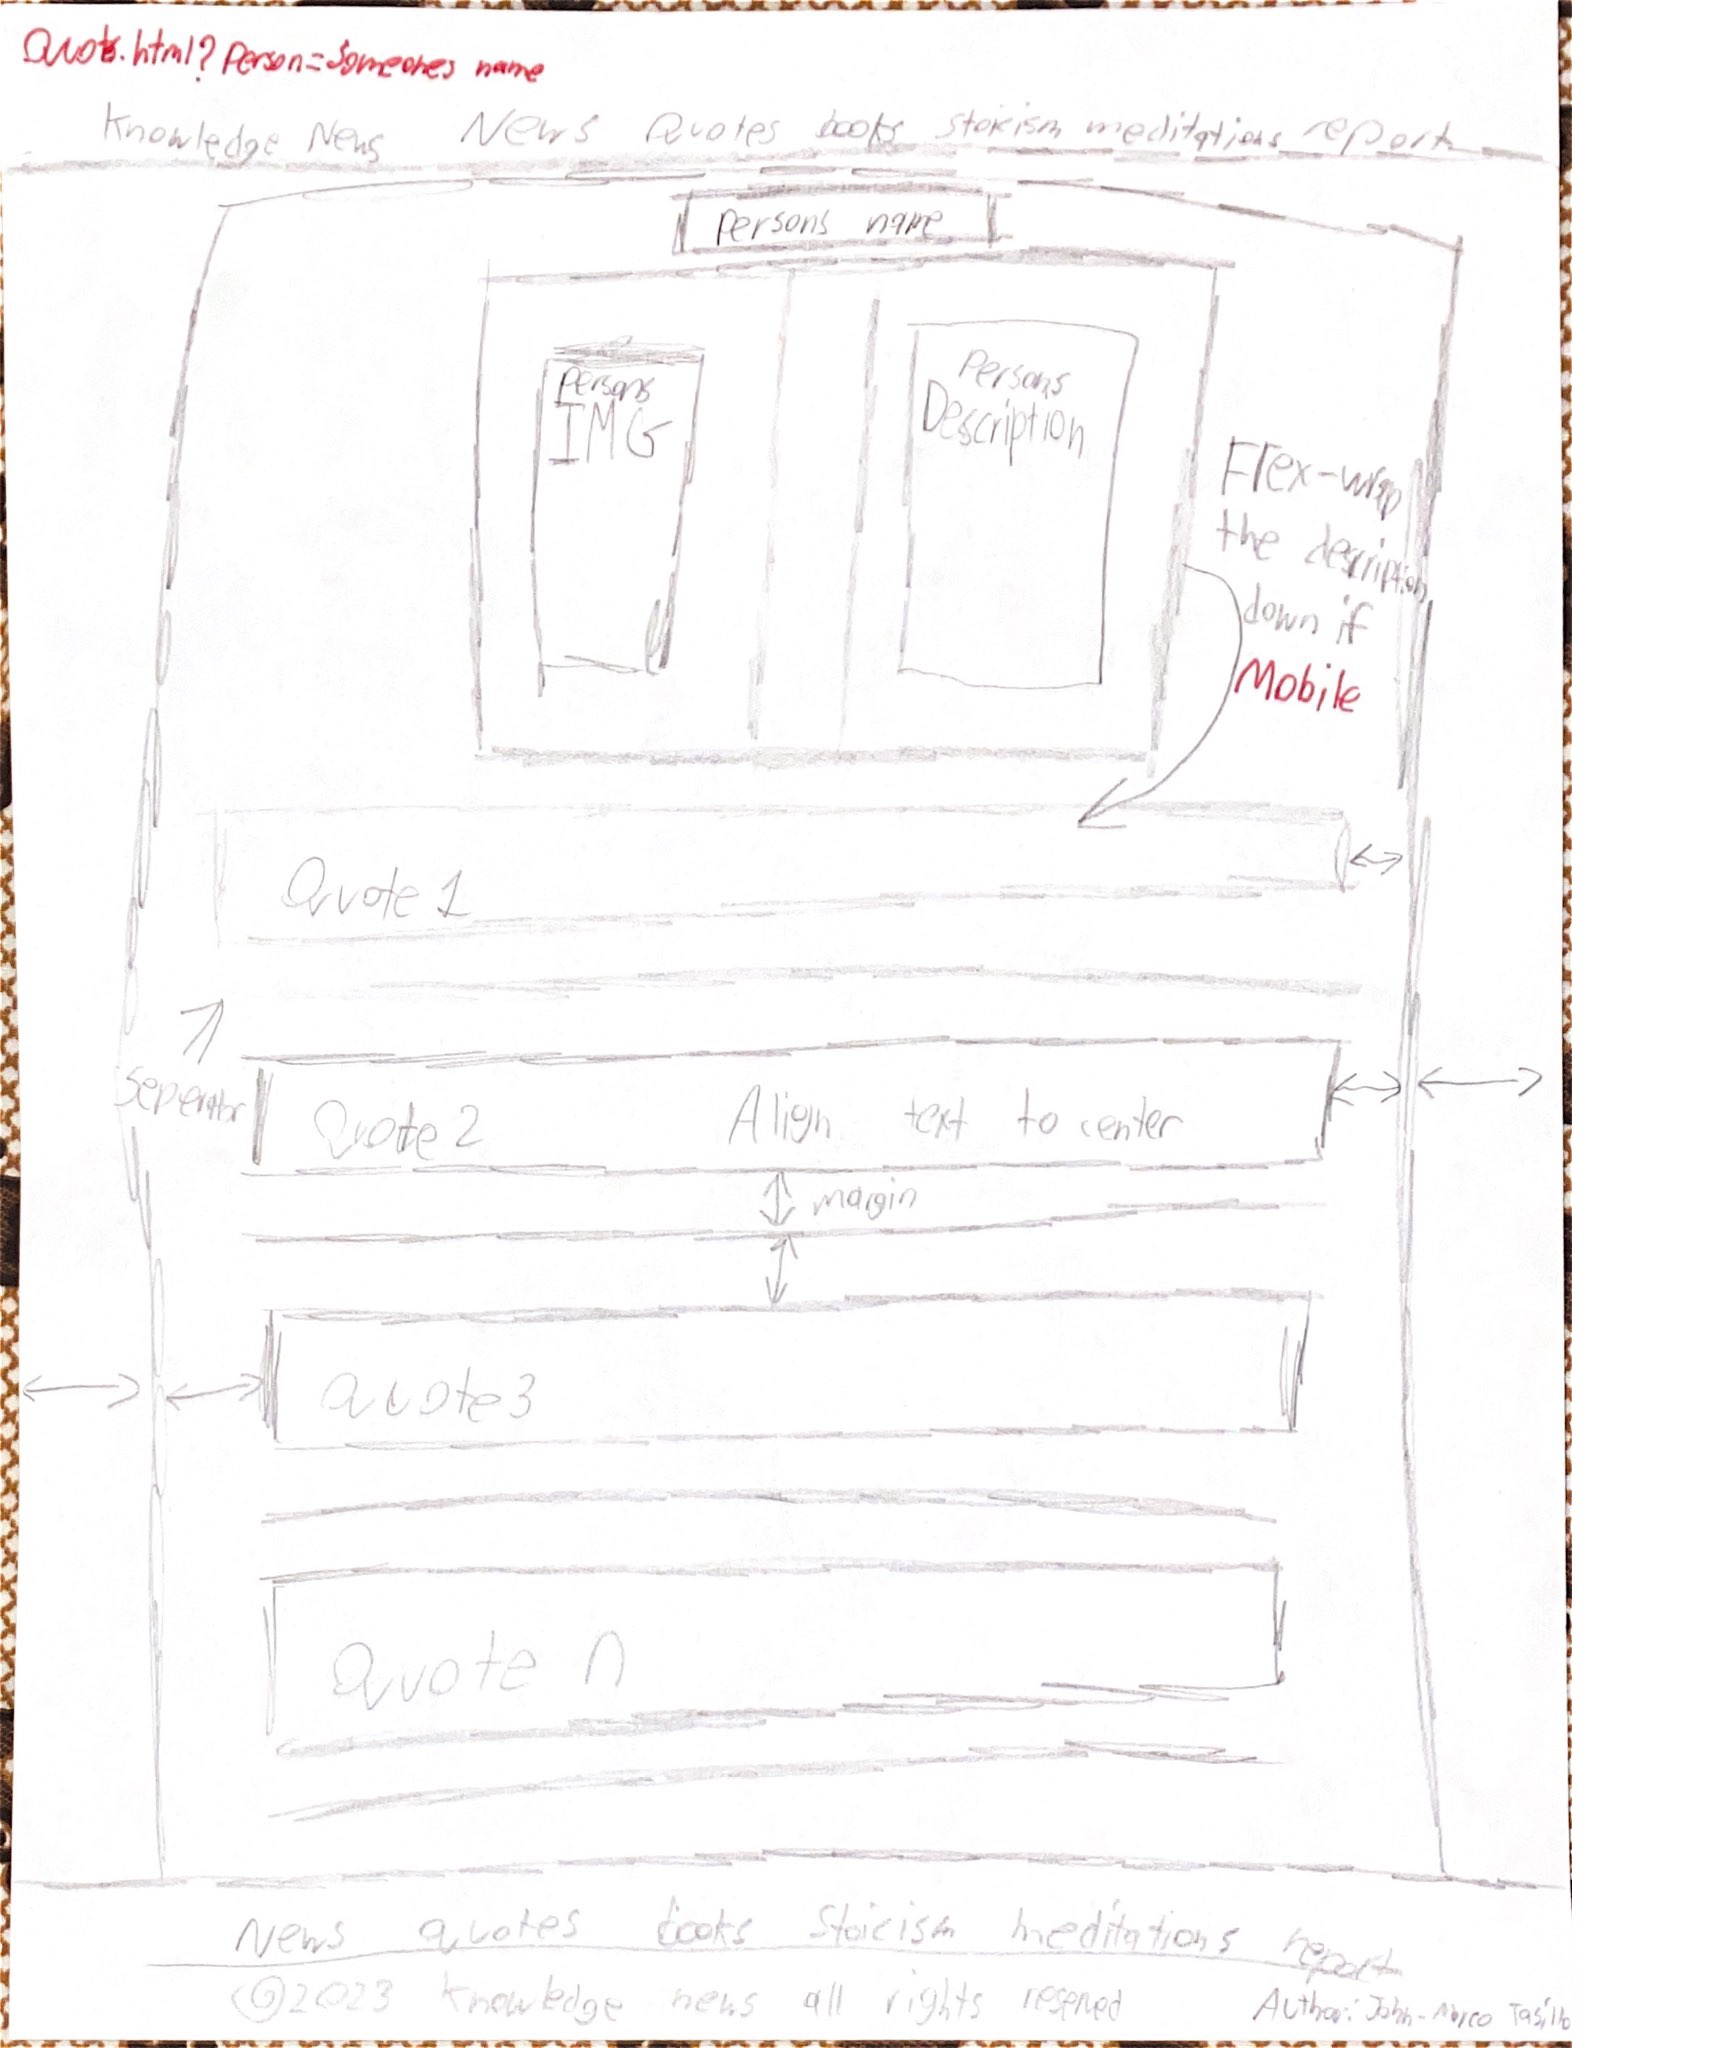 Quote.html?Person=Someones name
Knowledge News News Quotes books stoicism meditations report
Persons name
Persons
IMG
Persons
Description
Flex-wrap
the description
down if
Mobile
Quote 1
Seperator
Quote 2 Align text to center
margin
Quote 3
Quote n
News quotes books Stoicism meditations report
©2023 Knowledge news all rights reserved Author: John-Marco